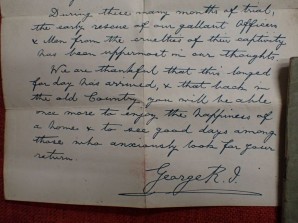 During these many months of trial,
the early rescue of our gallant Officers
& Men from the cruelties of their captivity
has been uppermost in our thoughts.
We are thankful that this longed
for day has arrived, & that back in
the old Country you will be able
once more to enjoy the happiness of
a home & to see good days among
those who anxiously look for your
return.
George R.I.